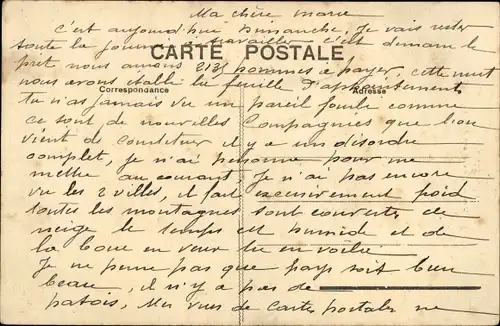 Ma chère Marie
C'est aujourd'hui Dimanche, Je vais rester
toute la journée à travailler C'est demain le
CARTE POSTALE
prêt nous avons 2135 hommes à payer, cette nuit
nous avons établi la feuille d'appointements
Correspondance
Adresse
tu n'as jamais vu un pareil fourbi comme
ce sont de nouvelles Compagnies que l'on
vient de constituer il y a un désordre
complet, je n'ai personne pour me
mettre au courant Je n'ai pas encore
vu les 2 villes, il fait excessivement froid
toutes les montagnes sont couvertes de
neige le temps est humide et de
la boue en veux tu en voilà
Je ne pense pas que pays soit bien
beau, il n'y a pas de
patois, Mes vues de Cartes postales ne